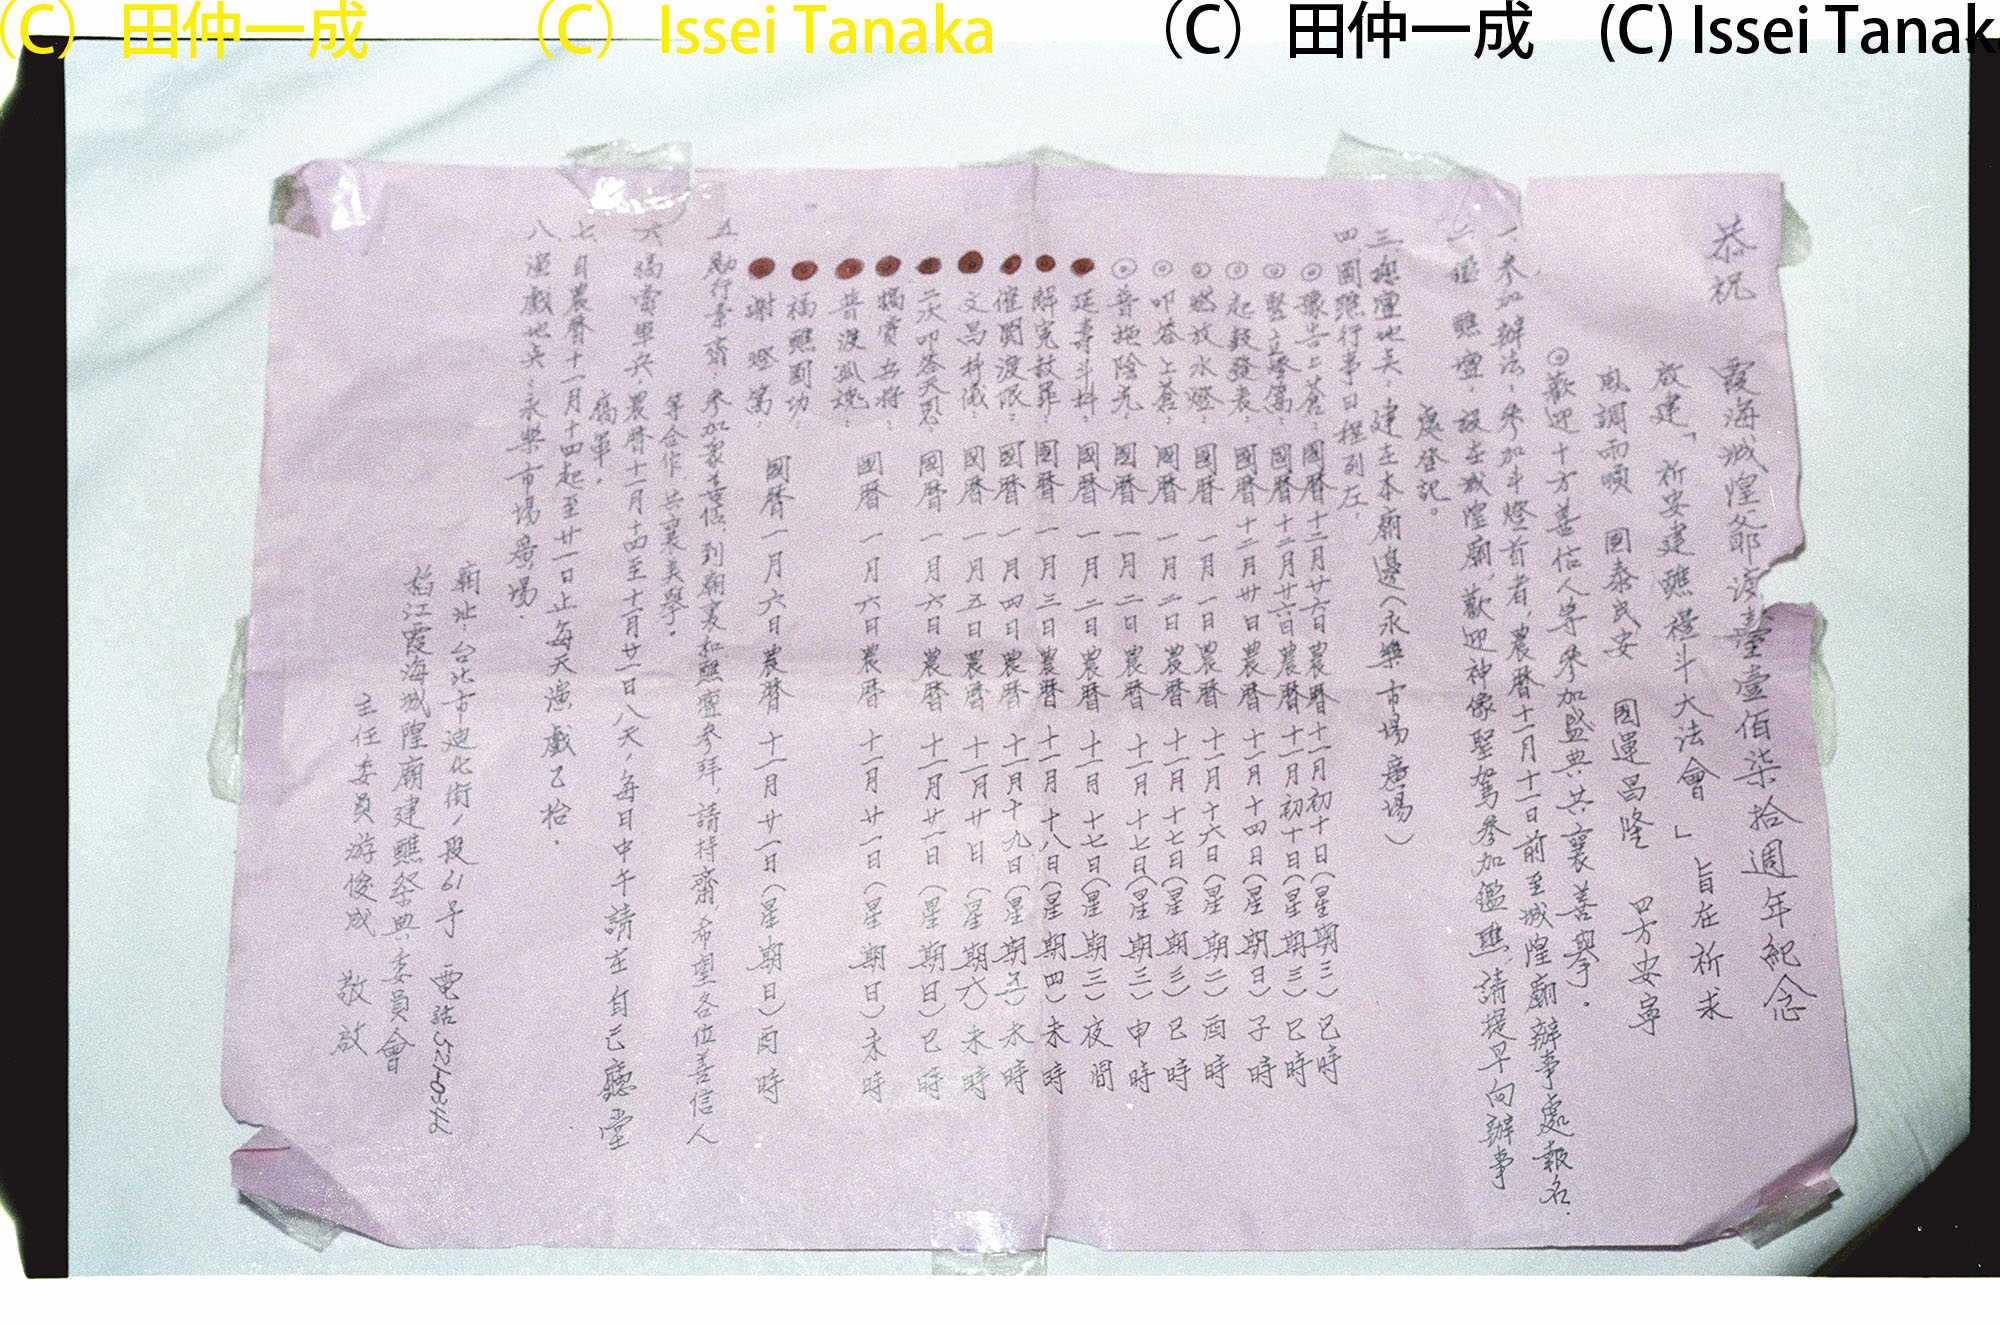 (C) 田仲一成 (C) Issei Tanaka (C) 田仲一成 (C) Issei Tanak
恭祝 霞海城隍爺渡臺壹佰柒拾週年紀念
啟建「祈安建醮禮斗大法會」旨在祈求
風調雨順 國泰民安 國運昌隆 四方安寧
⊙歡迎十方善信人等參加盛典共襄善舉。
一、參加辦法：參加斗燈首者，農曆十一月十一日前至城隍廟辦事處報名．
二、鑑醮壇：設在城隍廟，歡迎神像聖駕參加鑑醮，請提早向辦事
處登記。
三、壇地美：建在本廟邊（永樂市場廣場）
四、圓醮行事日程列左．
⊙豫告上蒼：國曆十二月廿六日農曆十一月初十日（星期三）巳時
⊙豎立燈篙：國曆十二月廿六日農曆十一月初十日（星期三）巳時
⊙起鼓發表：國曆十二月卅日農曆十一月十四日（星期日）子時
⊙燃放水燈：國曆一月一日農曆十一月十六日（星期二）酉時
⊙叩答上蒼：國曆一月二日農曆十一月十七日（星期三）巳時
⊙普施陰光：國曆一月二日農曆十一月十七日（星期三）申時
⊙延壽斗科：國曆一月二日農曆十一月十七日（星期三）夜間
⊙解冤赦罪：國曆一月三日農曆十一月十八日（星期四）未時
⊙催關渡限：國曆一月四日農曆十一月十九日（星期五）未時
⊙文昌科儀：國曆一月五日農曆十一月廿日（星期六）未時
⊙二次叩答天恩：國曆一月六日農曆十一月廿一日（星期日）巳時
⊙犒賞兵將：
⊙普渡孤魂：國曆一月六日農曆十一月廿一日（星期日）未時
⊙福醮圓功：
⊙謝燈篙：國曆一月六日農曆十一月廿一日（星期日）酉時
五、勵行素齋：參加眾善信，到廟裏和醮壇參拜，請持齋，希望各位善信人
等合作，共襄美舉。
六、犒賞軍兵：農曆十一月十四至十一月廿一日八天，每日中午請在自己廳堂
犒軍。
七、日農曆十一月十四起至廿一日止每天演戲乙枱．
八、演戲地美：永樂市場廣場．
廟址：台北市迪化街一段61号 電話521-03
稻江霞海城隍廟建醮祭典委員會
主任委員游俊成 敬啟